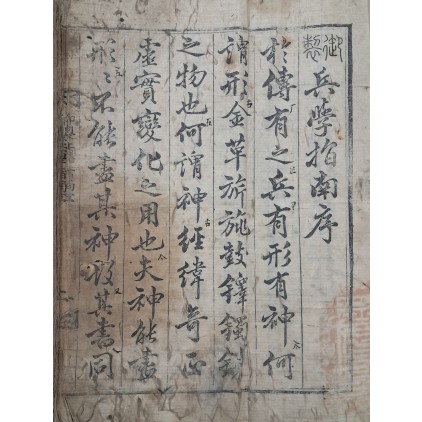 御製
兵學指南序
於傳有之兵有形有神何
謂形金革旂旐鼓鐸鐲
之物也何謂神經緯奇正
虛實變化之用也夫神能盡
形〻不能盡其神其書